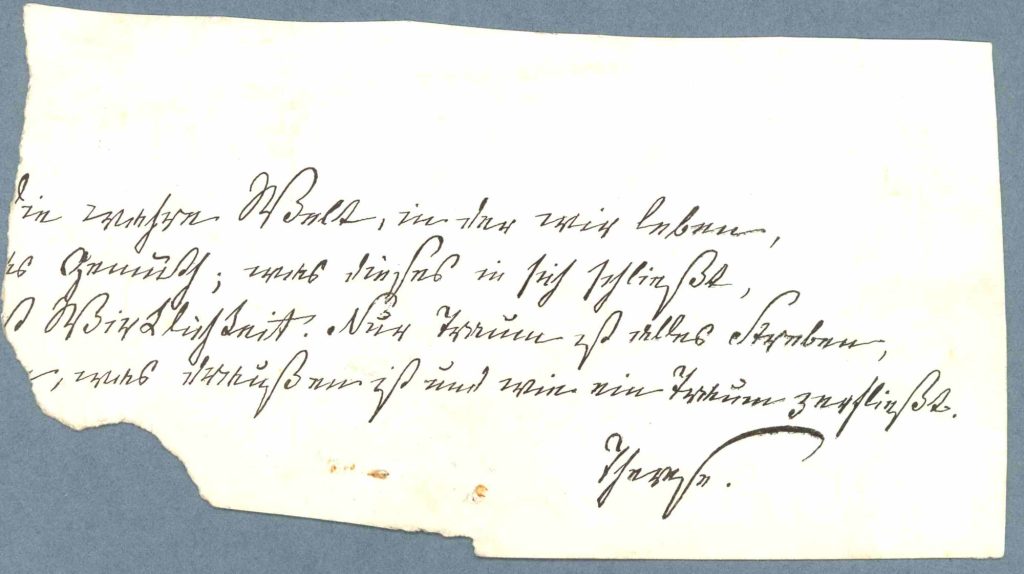 die wahre Welt, in der wir leben,
as Gemüth; was dieses in sich schließt,
Wirklichkeit. Nur Traum ist alles Streben,
was draußen ist und wie ein Traum zerfließt.
Therese.